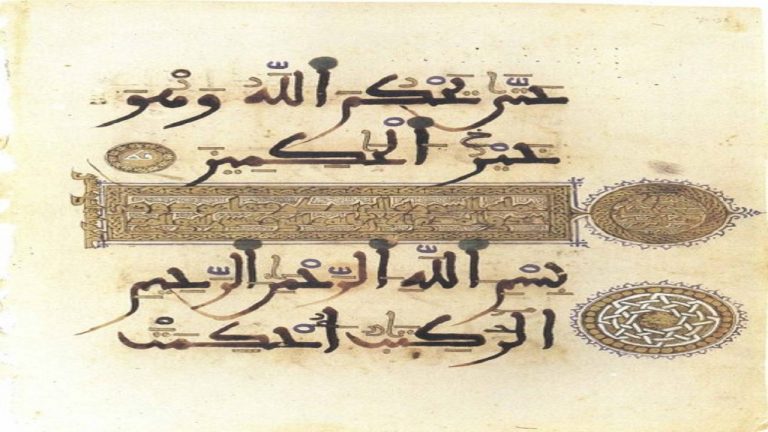 حَتَّىٰ يَحْكُمَ ٱللَّهُ وَهْوَ
خَيْرُ ٱلْحَٰكِمِينَ
بِسْمِ ٱللَّهِ ٱلرَّحْمَٰنِ ٱلرَّحِيمِ
الٓر كِتَٰبٌ أُحْكِمَتْ